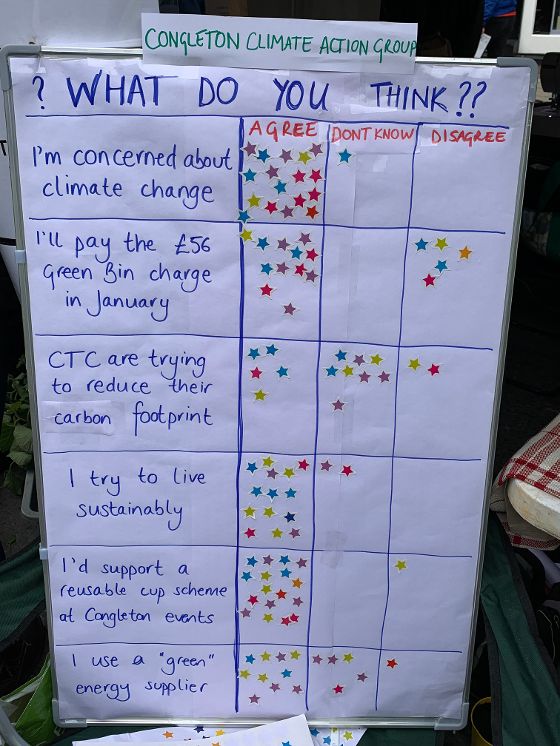 CONGLETON CLIMATE ACTION GROUP
? WHAT DO YOU THINK??
AGREE DONT KNOW DISAGREE
I'm concerned about
climate change
I'll pay the £56
Green Bin charge
in January
CTC are trying
to reduce their
carbon footprint
I try to live
sustainably
I'd support a
reusable cup scheme
at Congleton events
I use a "green"
energy supplier